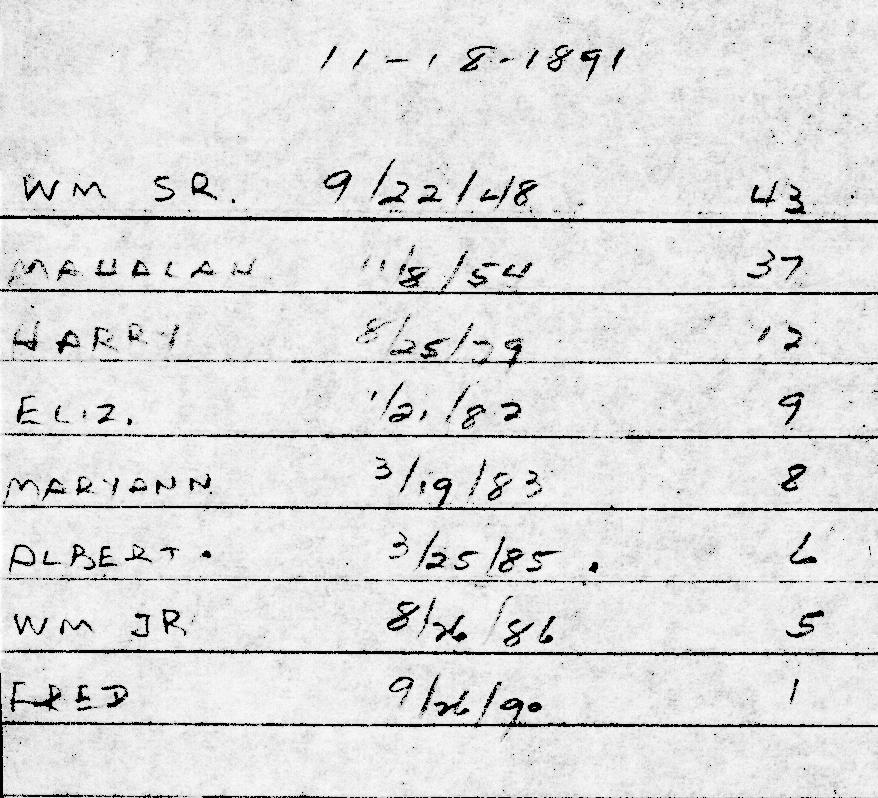 11-18-1891
WM SR. 9/22/48 43
MAHALAH 11/8/54 37
HARRY 8/25/79 12
ELIZ. 1/21/82 9
MARYANN 3/19/83 8
ALBERT. 3/25/85. 6
WM JR 8/26/86 5
FRED 9/26/90 1